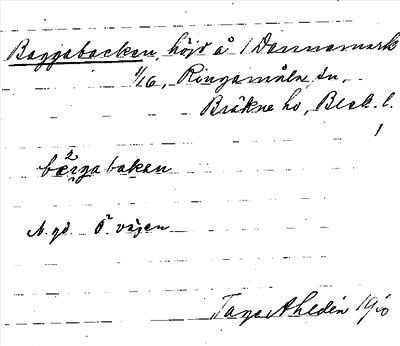 Baggabacken, höjd å 1 Dannemark
1/16, Ringamåla sn,
Bräkne hd, Blek. l.
1
bagabakan
N. gd. Ö. vägen
Tage Ahldén 19